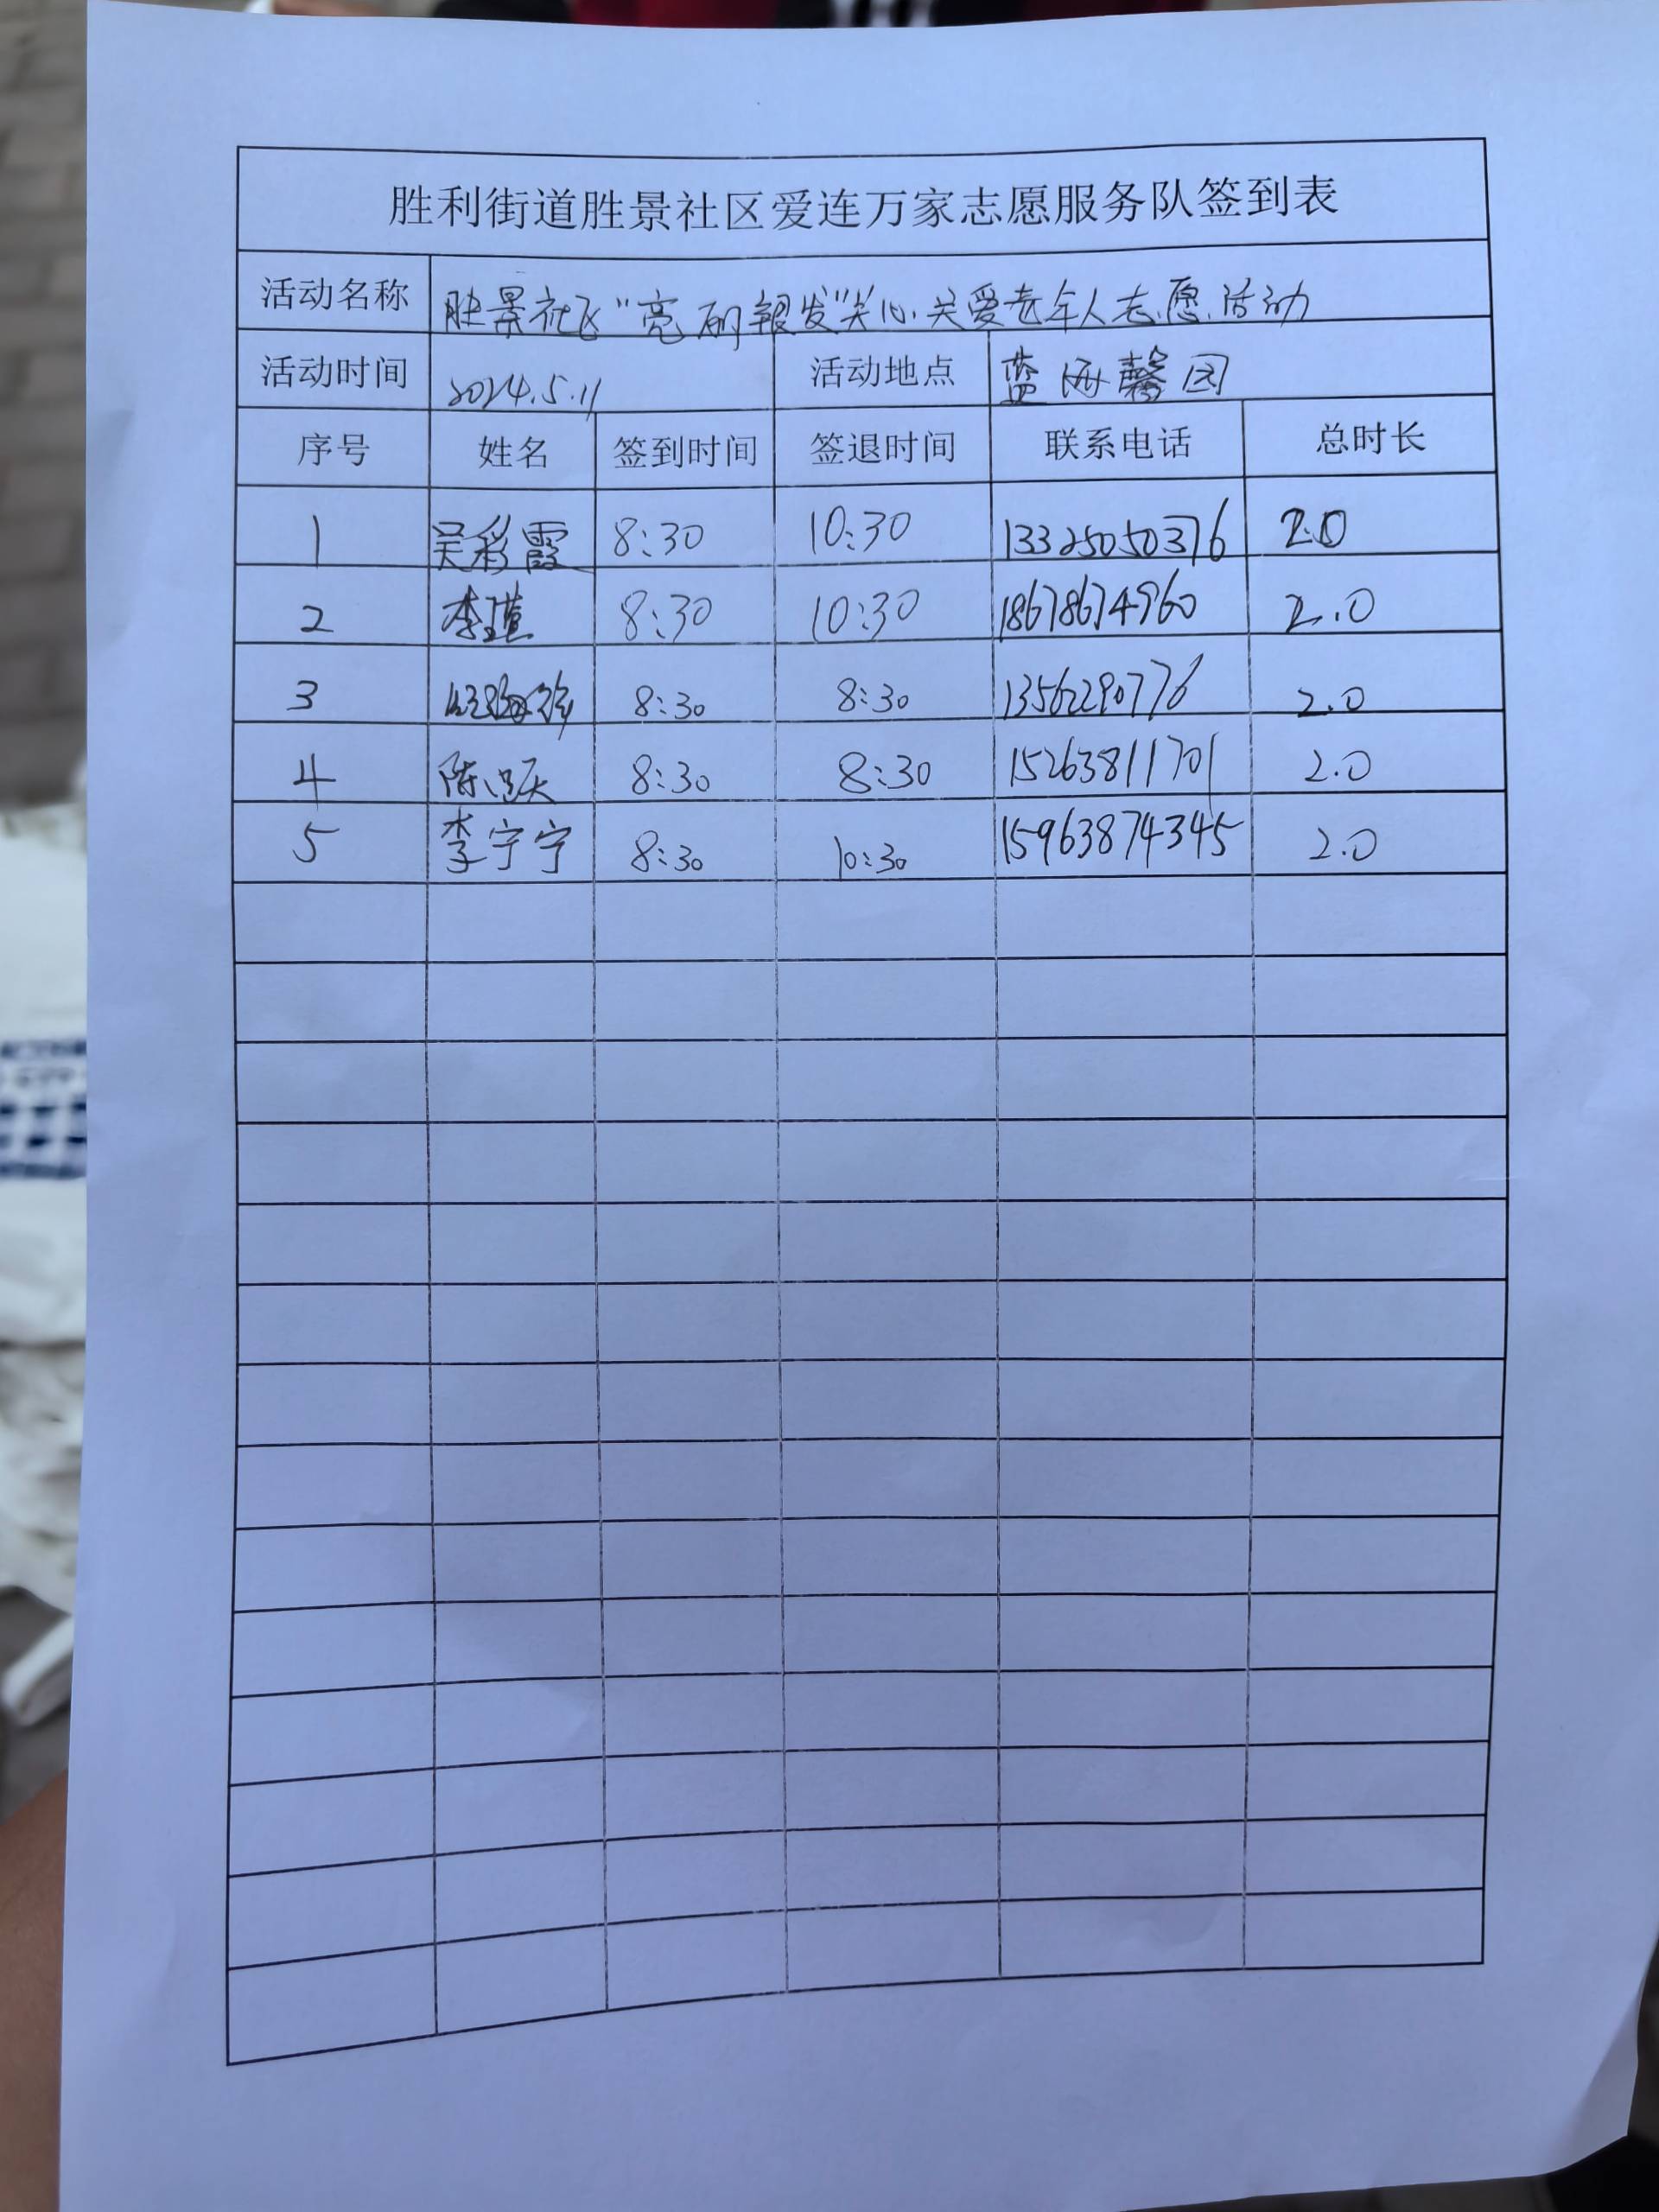 胜利街道胜景社区爱连万家志愿服务队签到表
活动名称 胜景社区“亮丽银发”关心关爱老年人志愿活动
活动时间 2024.5.11 活动地点 蓝海馨园
序号 姓名 签到时间 签退时间 联系电话 总时长
1 吴彩霞 8:30 10:30 13325050376 2.0
2 李瑾 8:30 10:30 18678674960 2.0
3 8:30 8:30 13562290776 2.0
4 8:30 8:30 15263811701 2.0
5 李宁宁 8:30 10:30 15963874345 2.0